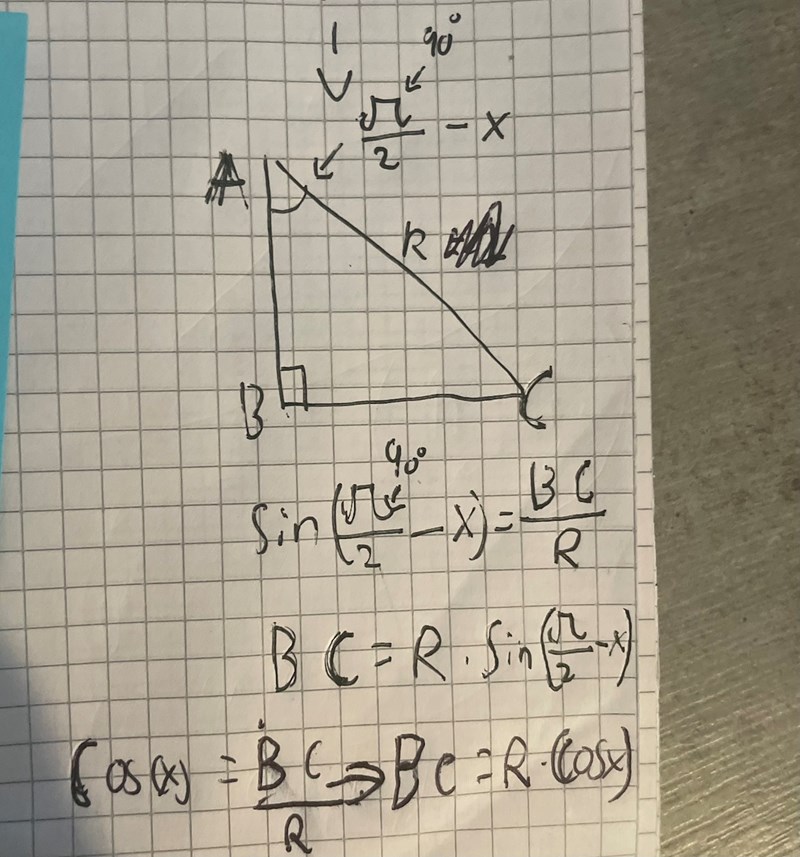 1 90°
π/2 - x
A
R
B C
90°
Sin(π/2 - x) = BC/R
BC = R · Sin(π/2 - x)
Cos(x) = BC/R → BC = R · Cos(x)